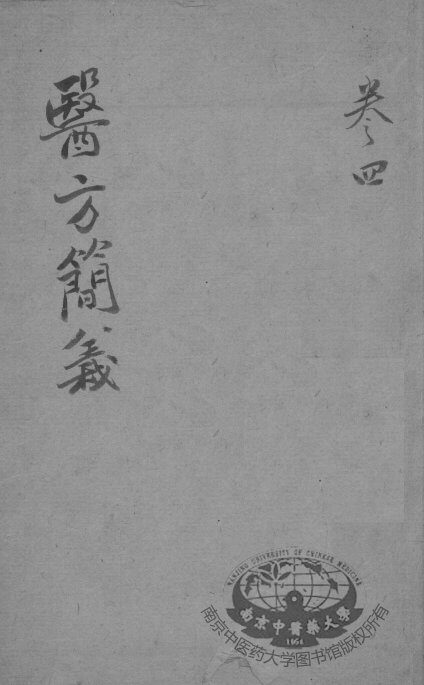 卷四
醫方簡義
NANJING UNIVERSITY OF CHINESE MEDICINE
南京中醫藥大學
1954
南京中医药大学图书馆版权所有